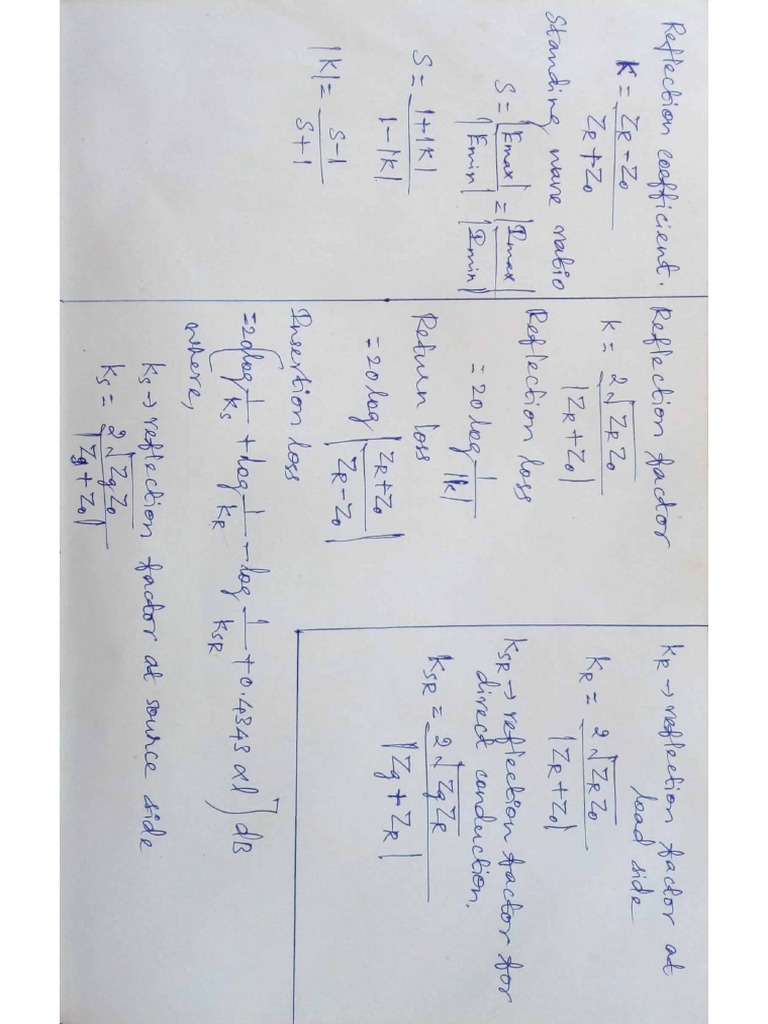 Reflection coefficient.
K = (Z_R - Z_0) / (Z_R + Z_0)
Standing wave ratio
S = |E_max| / |E_min| = |I_max| / |I_min|
S = 1+|K| / 1-|K|
|K| = S-1 / S+1
Reflection factor
k = 2√(Z_R Z_0) / |Z_R + Z_0|
Reflection loss
= 20 log 1/|k|
Return loss
= 20 log |(Z_R + Z_0) / (Z_R - Z_0)|
Insertion loss
= 20[log 1/k_S + log 1/k_R - log 1/k_SR + 0.4343 αl] dB
where,
k_S → reflection factor at source side
k_S = 2√(Z_g Z_0) / |Z_g + Z_0|
k_R → reflection factor at
load side
k_R = 2√(Z_R Z_0) / |Z_R + Z_0|
k_SR → reflection factor for
direct conduction.
k_SR = 2√(Z_g Z_R) / |Z_g + Z_R|